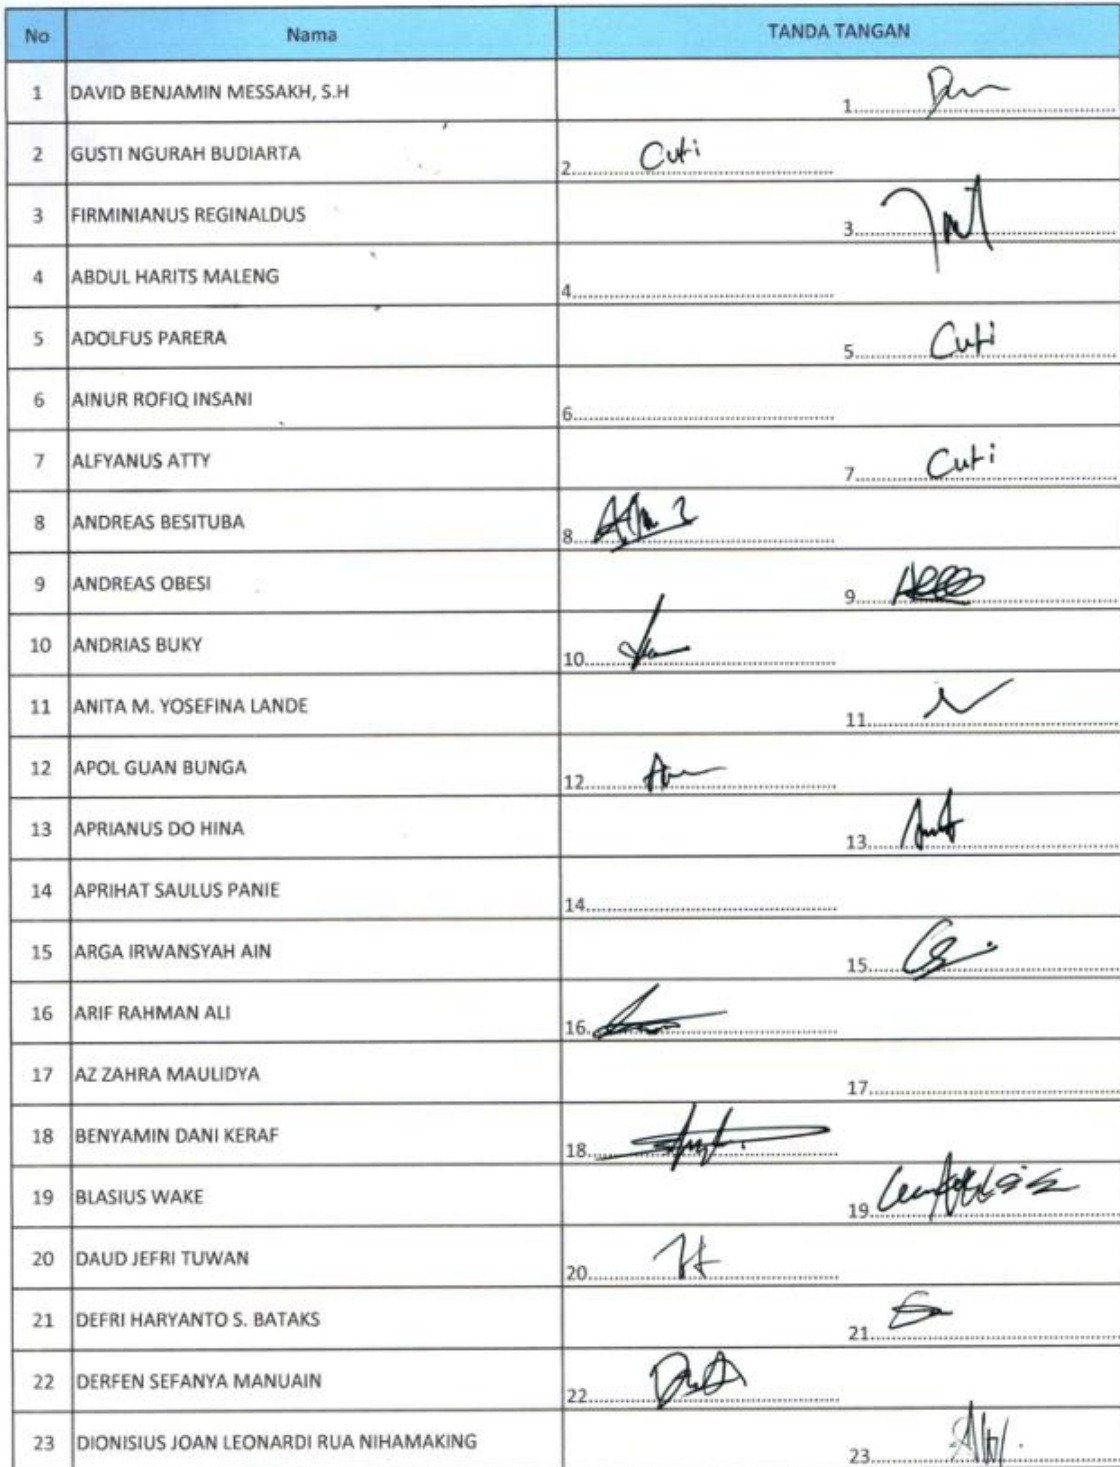 No Nama TANDA TANGAN
1 DAVID BENJAMIN MESSAKH, S.H 1
2 GUSTI NGURAH BUDIARTA 2 Cuti
3 FIRMINIANUS REGINALDUS 3
4 ABDUL HARITS MALENG 4
5 ADOLFUS PARERA 5 Cuti
6 AINUR ROFIQ INSANI 6
7 ALFYANUS ATTY 7 Cuti
8 ANDREAS BESITUBA 8
9 ANDREAS OBESI 9
10 ANDRIAS BUKY 10
11 ANITA M. YOSEFINA LANDE 11
12 APOL GUAN BUNGA 12
13 APRIANUS DO HINA 13
14 APRIHAT SAULUS PANIE 14
15 ARGA IRWANSYAH AIN 15
16 ARIF RAHMAN ALI 16
17 AZ ZAHRA MAULIDYA 17
18 BENYAMIN DANI KERAF 18
19 BLASIUS WAKE 19
20 DAUD JEFRI TUWAN 20
21 DEFRI HARYANTO S. BATAKS 21
22 DERFEN SEFANYA MANUAIN 22
23 DIONISIUS JOAN LEONARDI RUA NIHAMAKING 23